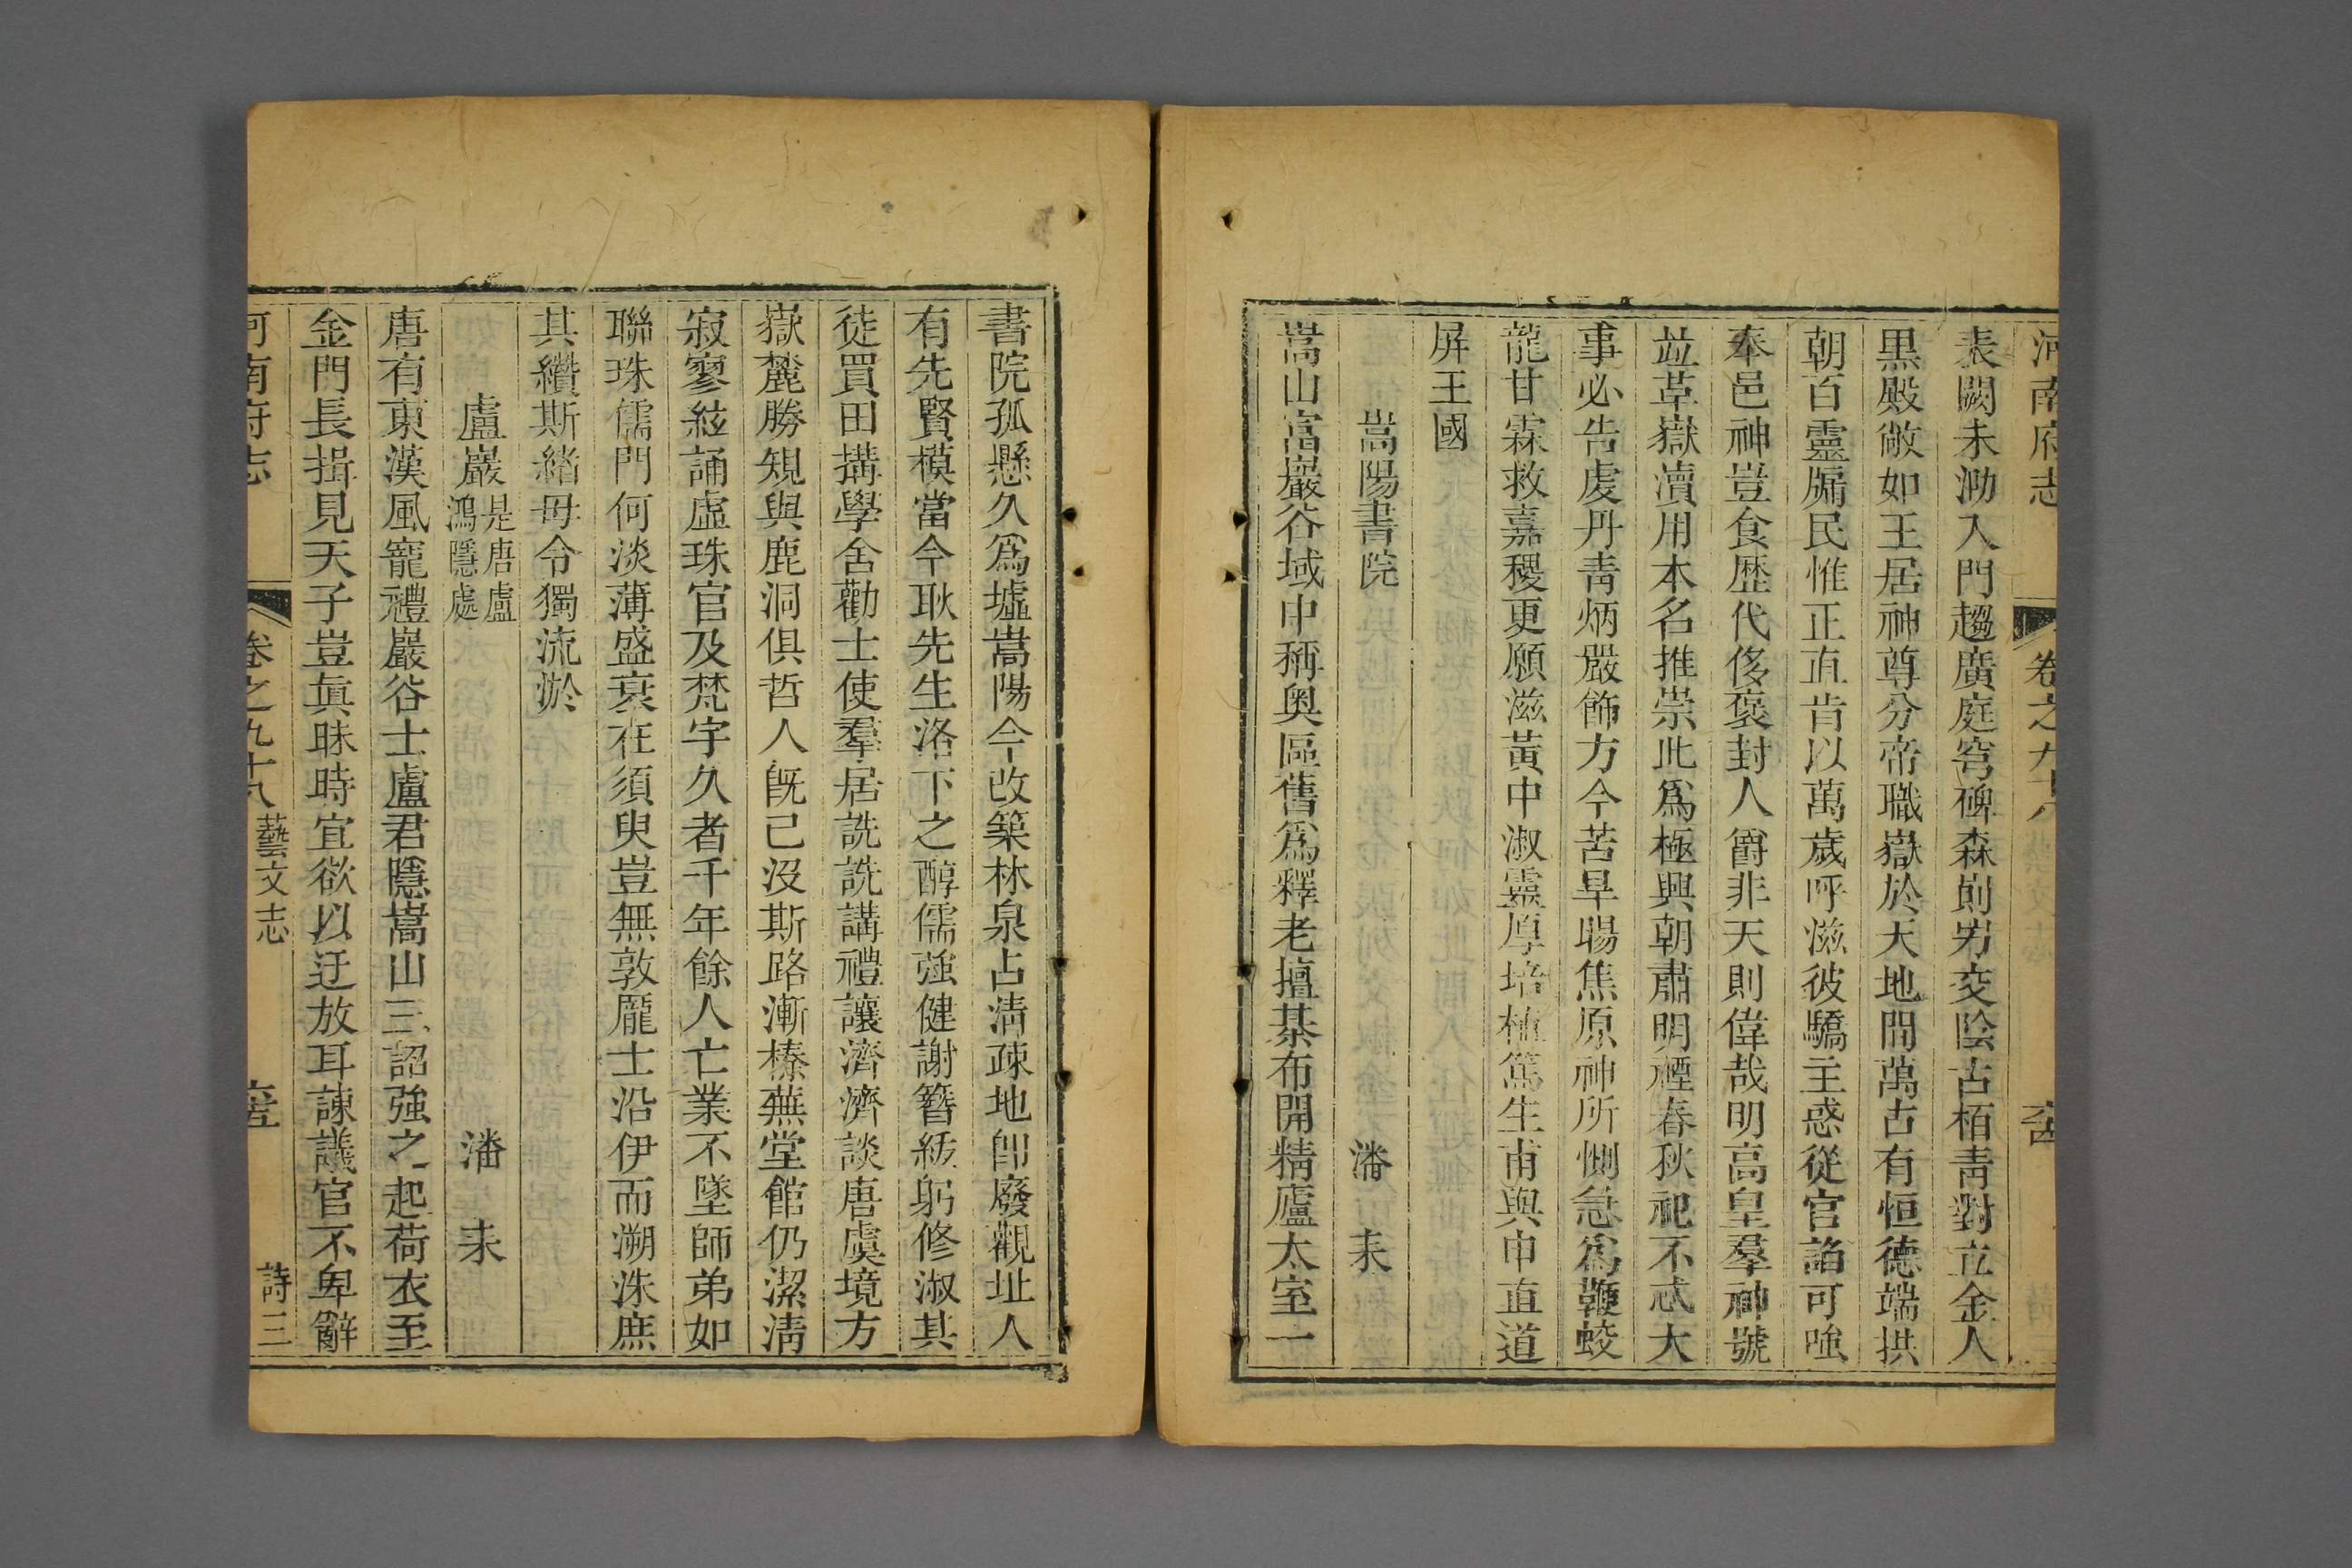 河南府志 卷之九十八
表闕未泐入門趨廣庭穹碑森崱屴交陰古栢青對立金人
黑殿敞如王居神尊分帝職嶽於天地間萬古有恒德端拱
朝百靈牖民惟正直肯以萬歲呼滋彼驕主惑從官諂可嗤
奉邑神豈食歴代侈褒封人爵非天則偉哉明高皇羣神號
竝革嶽瀆用本名推崇此爲極興朝肅明禋春秋祀不忒大
事必告虔丹青炳嚴飾方今苦旱暘焦原神所惻急爲鞭蛟
龍甘霖救嘉稷更願滋黃中淑靈厚培植篤生甫與申直道
屏王國
嵩陽書院 潘耒
嵩山富巖谷域中稱奥區舊爲釋老擅棊布開精廬太室一
書院孤懸久爲墟嵩陽今改築林泉占清疎地卽廢觀址人
有先賢模當今耿先生洛下之醇儒強健謝簪紱躬修淑其
徒買田搆學舍勸士使羣居詵詵講禮讓濟濟談唐虞境方
嶽麓勝䂓與鹿洞俱哲人旣已沒斯路漸榛蕪堂館仍潔淸
寂寥絃誦虛珠官及梵宇久者千年餘人亡業不墜師弟如
聯珠儒門何淡薄盛衰在須臾豈無敦龎士沿伊而溯洙庶
其纘斯緒毋令獨流淤
盧巖 是唐盧鴻隱處 潘耒
唐有東漢風寵禮巖谷士盧君隱嵩山三詔強之起荷衣至
金門長揖見天子豈眞昧時宜欲以迂放耳諫議官不卑辭
河南府志 卷之九十八 藝文志 詩三